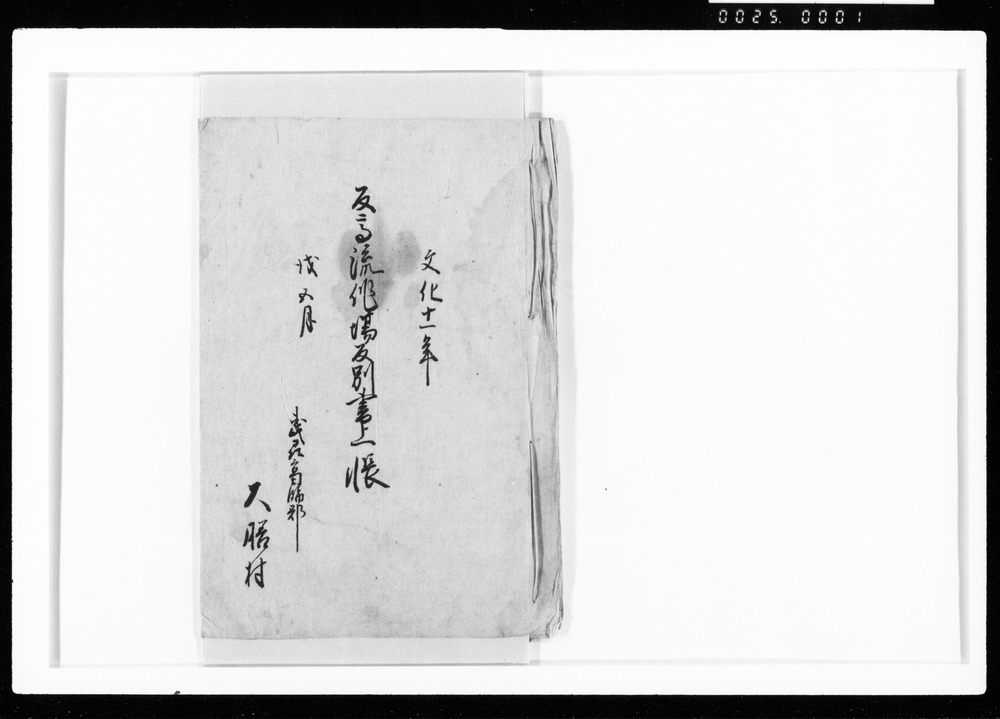 0025.0001
文化十一年
反高流作場反別書上帳
戌五月
武蔵葛飾郡
大膳村